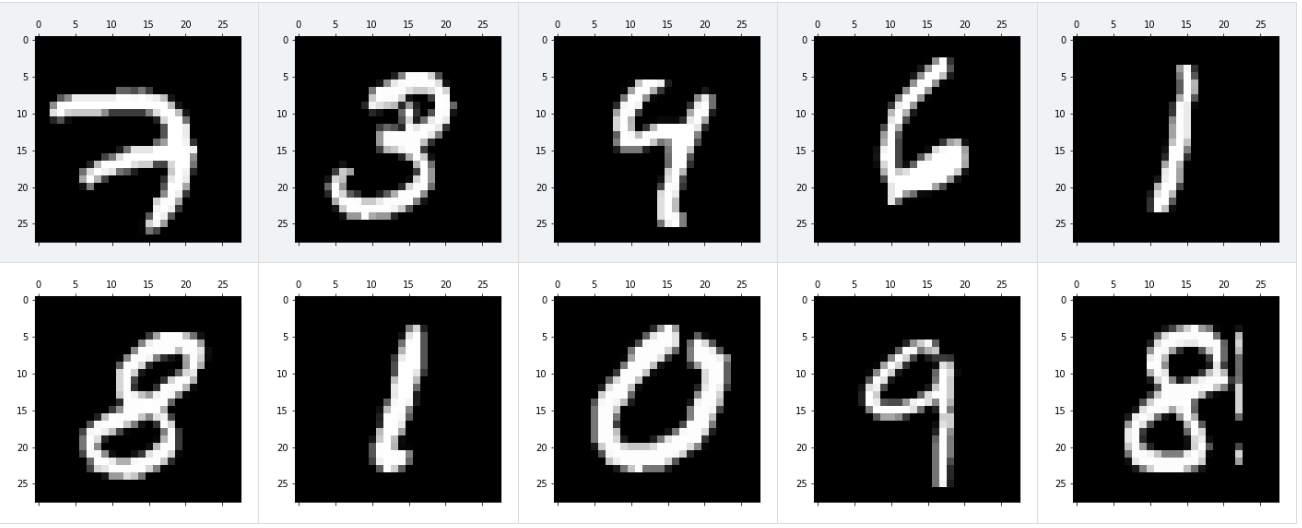 0 5 10 15 20 25
0
5
10
15
20
25
7
0 5 10 15 20 25
0
5
10
15
20
25
3
0 5 10 15 20 25
0
5
10
15
20
25
4
0 5 10 15 20 25
0
5
10
15
20
25
6
0 5 10 15 20 25
0
5
10
15
20
25
1
0 5 10 15 20 25
0
5
10
15
20
25
8
0 5 10 15 20 25
0
5
10
15
20
25
1
0 5 10 15 20 25
0
5
10
15
20
25
0
0 5 10 15 20 25
0
5
10
15
20
25
9
0 5 10 15 20 25
0
5
10
15
20
25
8